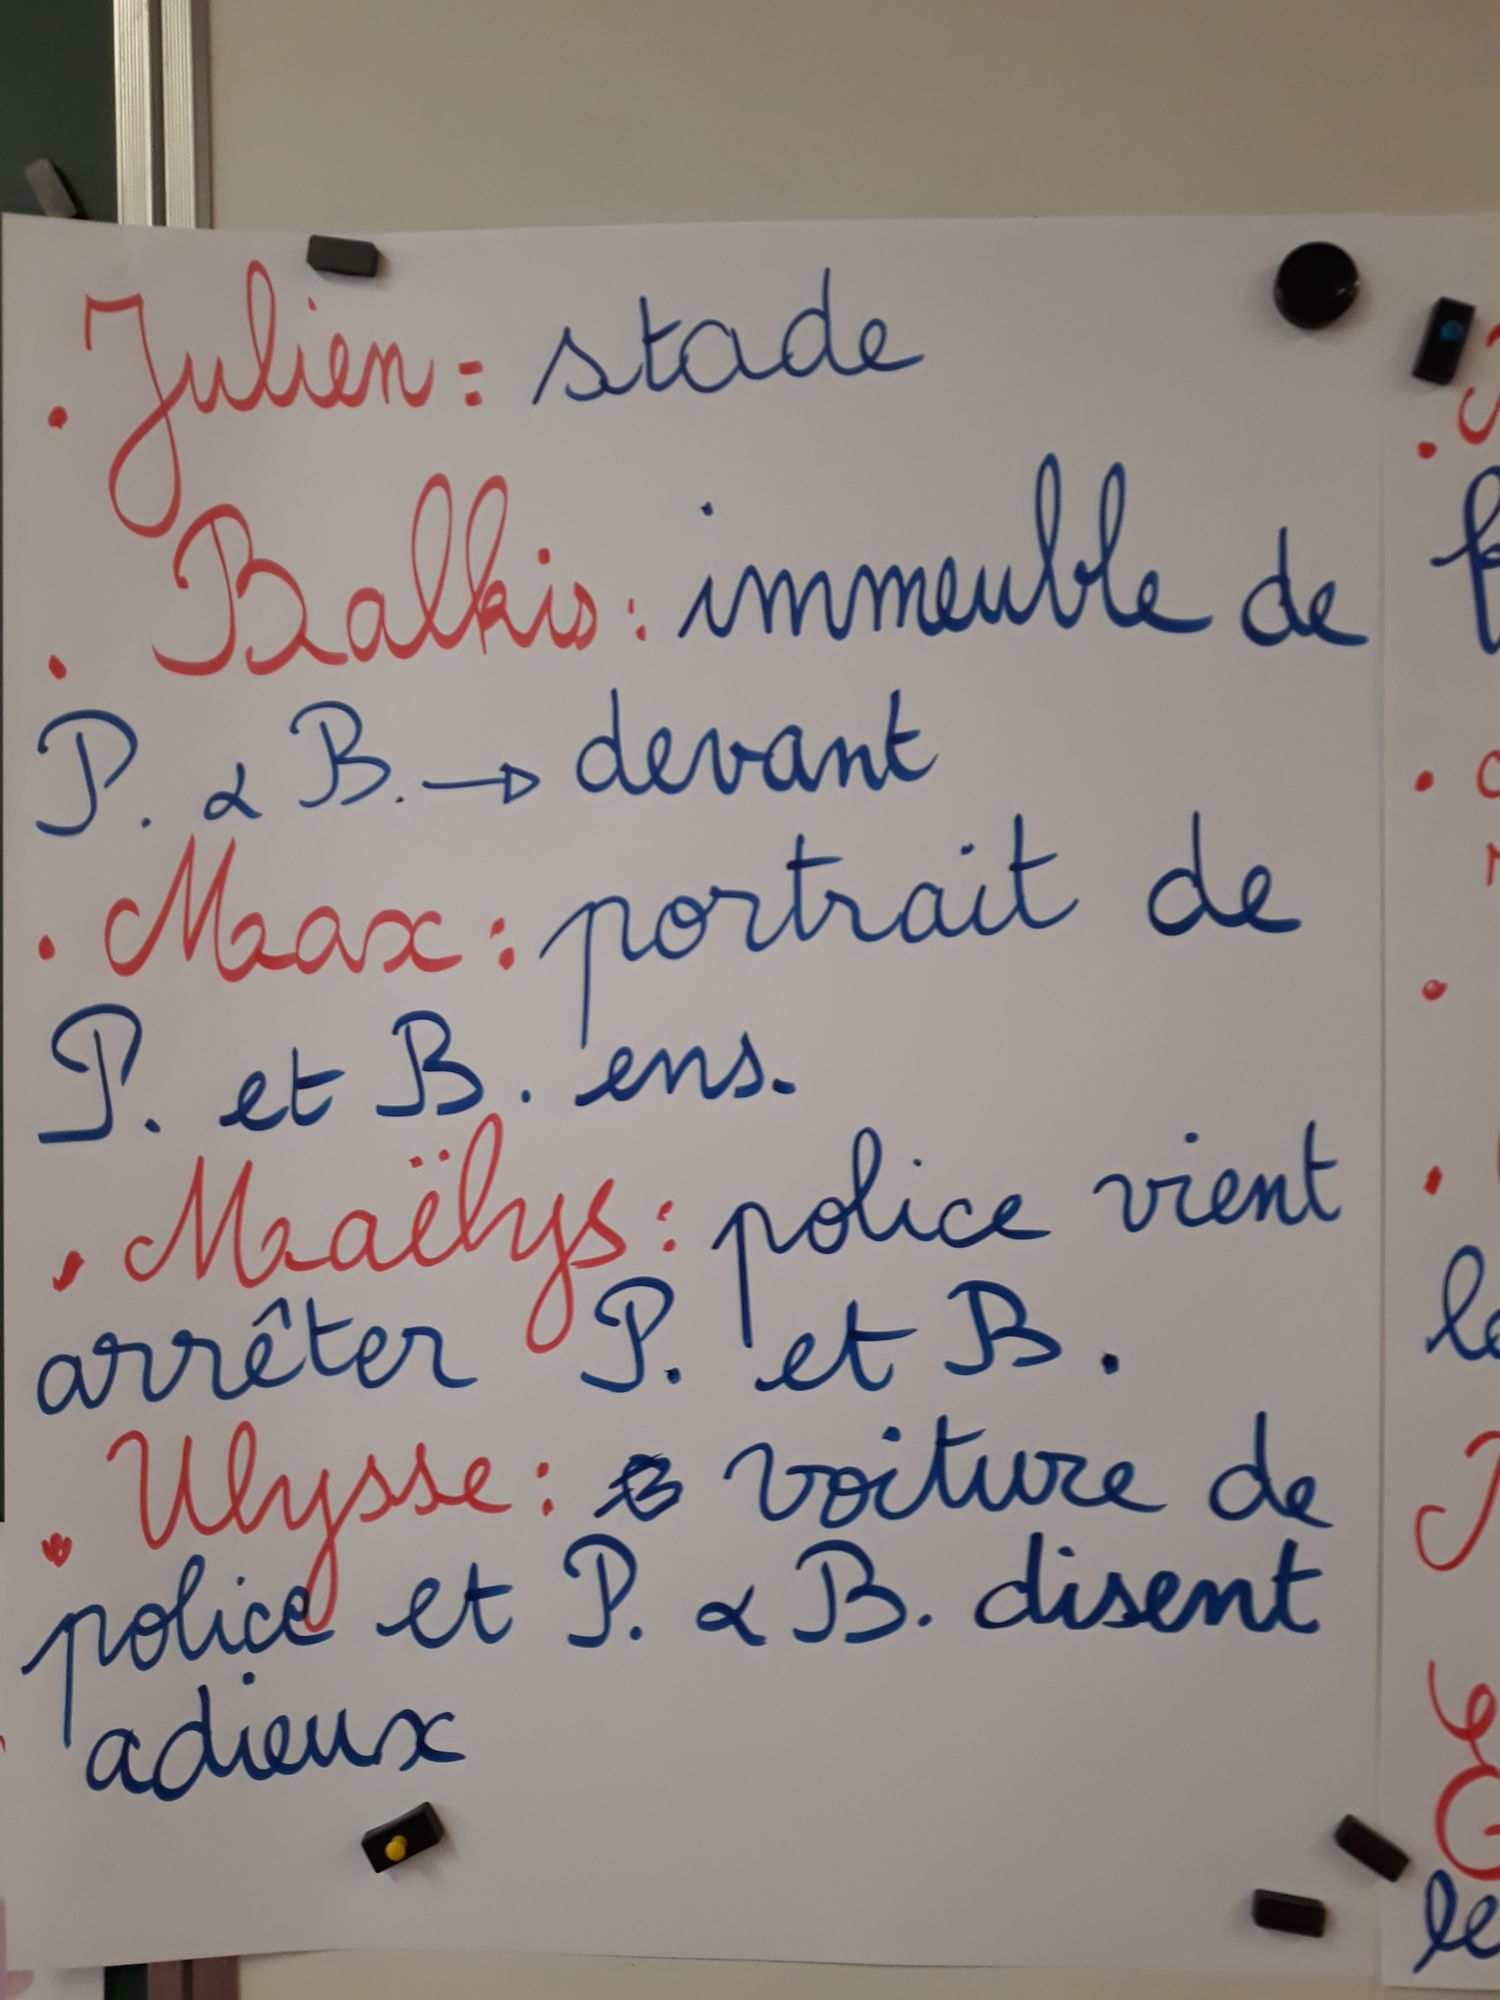 . Julien : stade
. Balkis : immeuble de
P. & B. → devant
. Max : portrait de
P. et B. ens.
. Maëlys : police vient
arrêter P. et B.
. Ulysse : voiture de
police et P. & B. disent
adieux